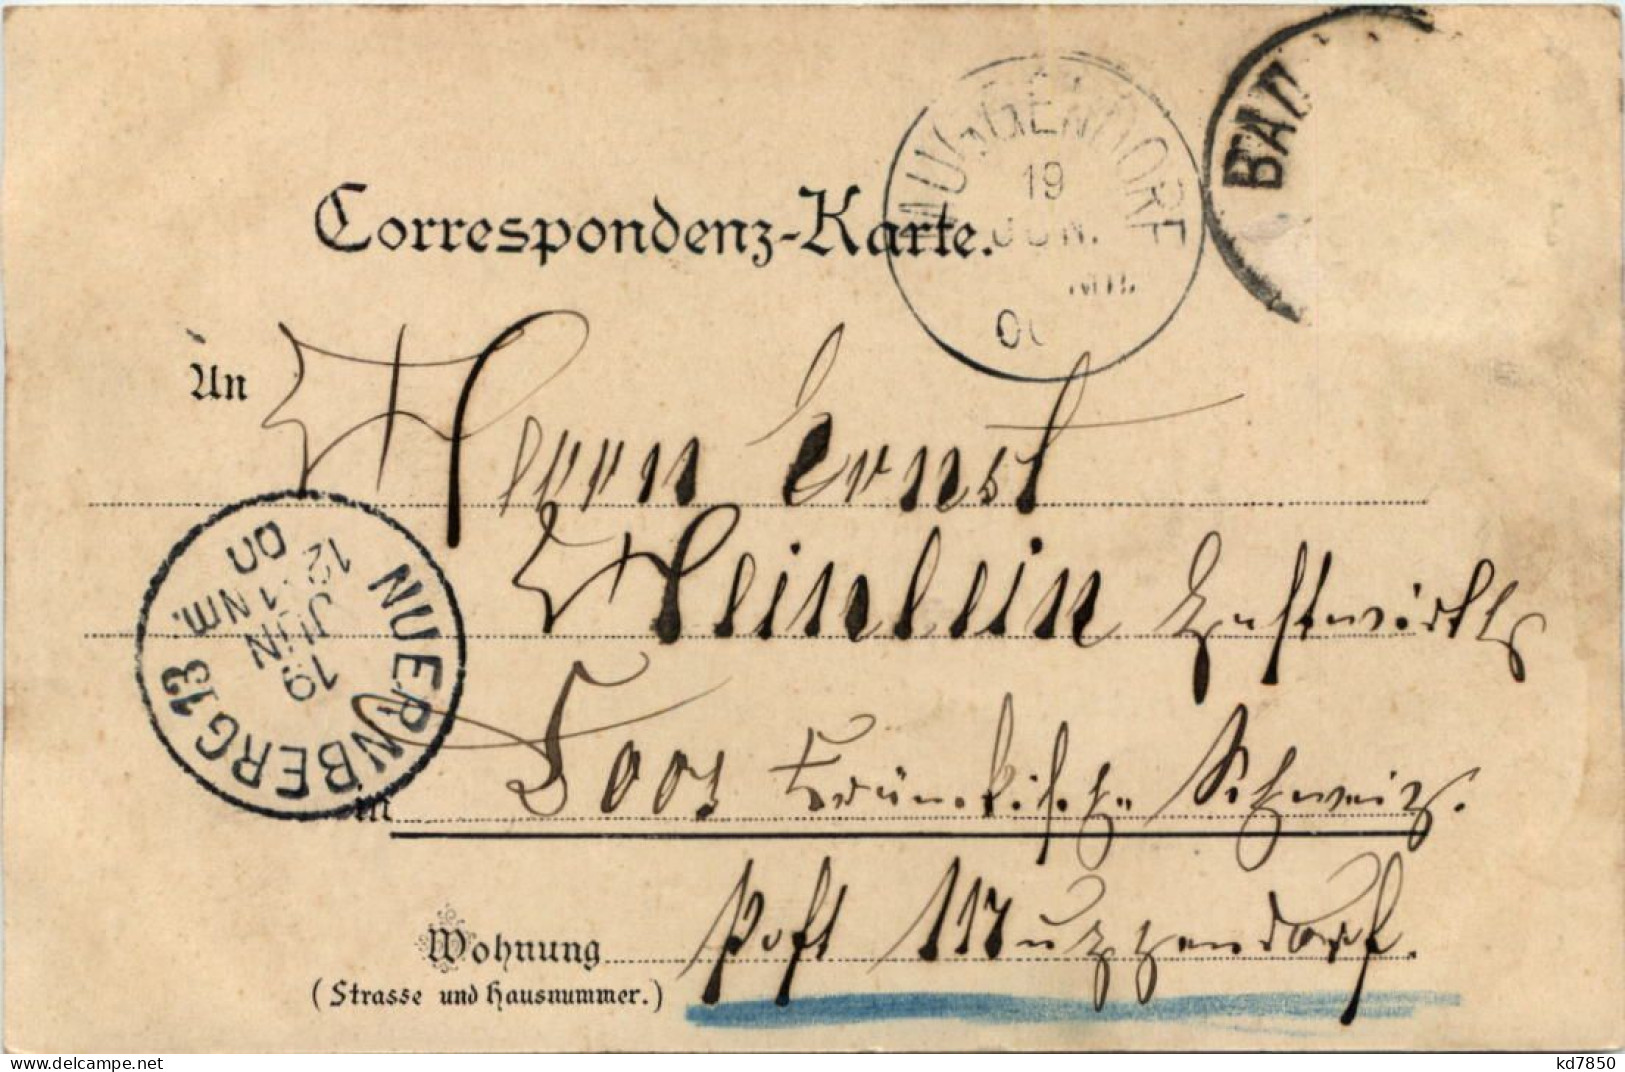 MUGGENDORF
19
JUN.
NM.
00
BAD
Correspondenz-Karte.
An Herrn Ernst
Heinlein Gastwirth
NUERNBERG 13
19 JUN
12-1 NM.
00
in Doos Fränkische Schweiz.
Wohnung Post Muggendorf.
(Strasse und Hausnummer.)
www.delcampe.net
kd7850